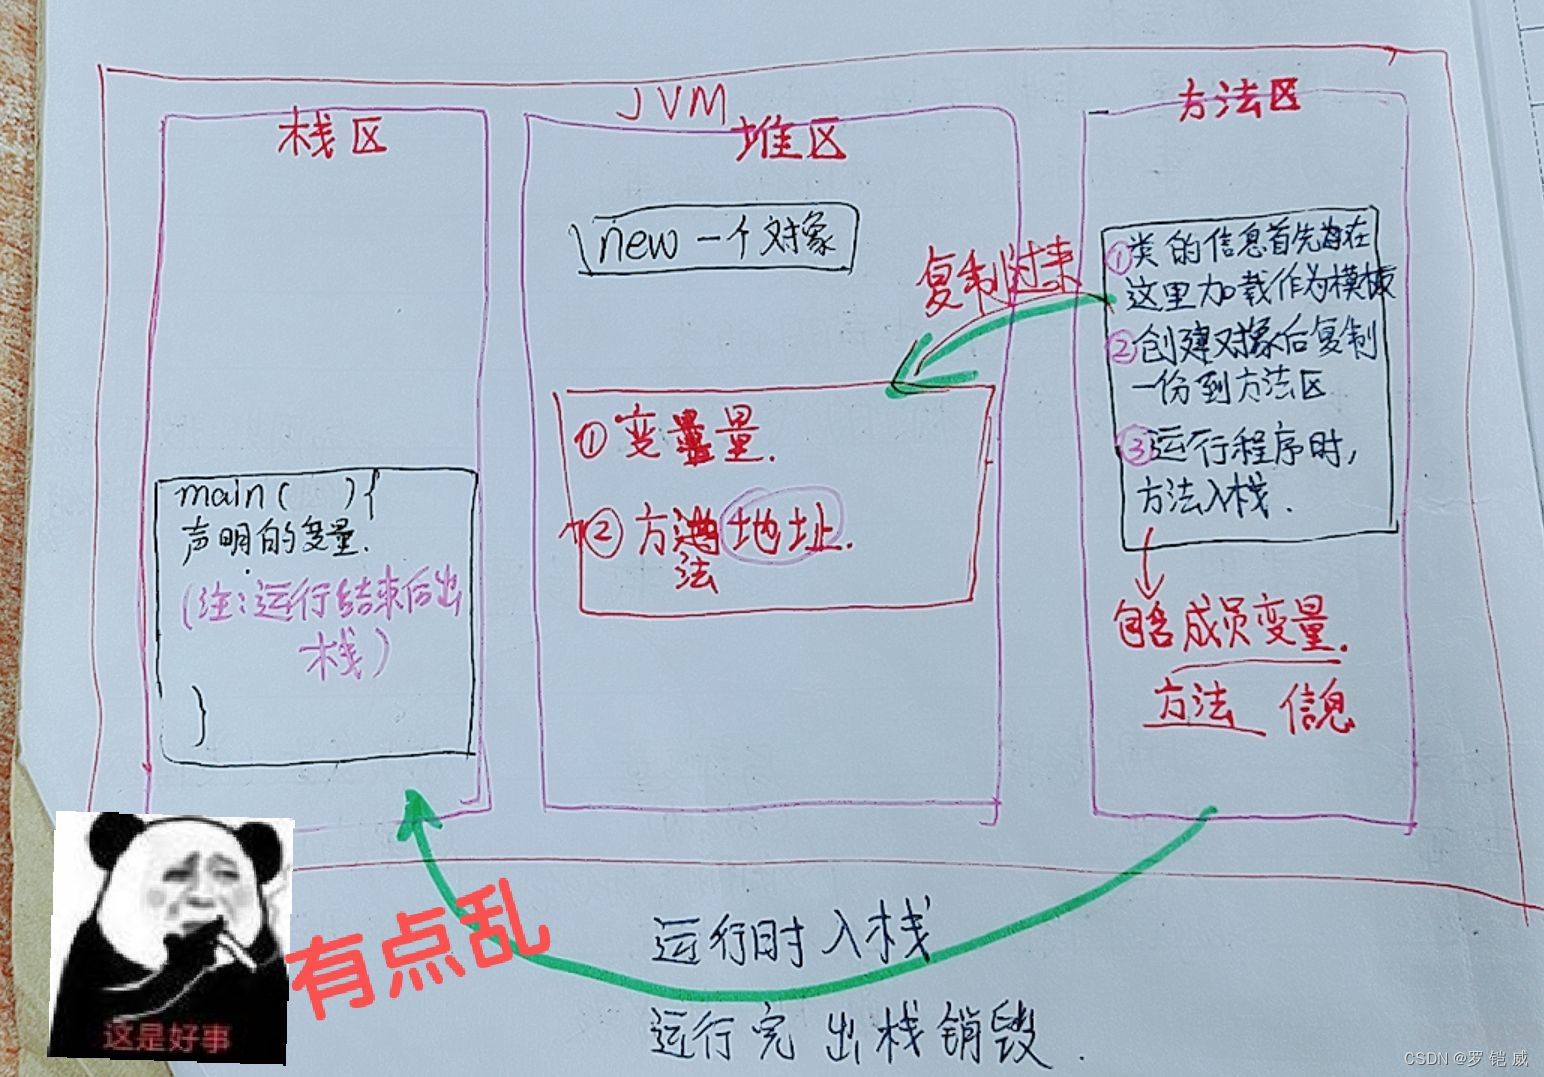 JVM
栈区
堆区
方法区
new 一个对象
复制过来
①类的信息首先在
这里加载作为模板
②创建对象后复制
一份到方法区
③运行程序时,
方法入栈.
①变量.
②方法地址.
main( ){
声明的变量.
(注:运行结束后出
栈)
}
包含成员变量.
方法 信息
有点乱
这是好事
运行时入栈
运行完 出栈销毁.
CSDN @罗 铠 威